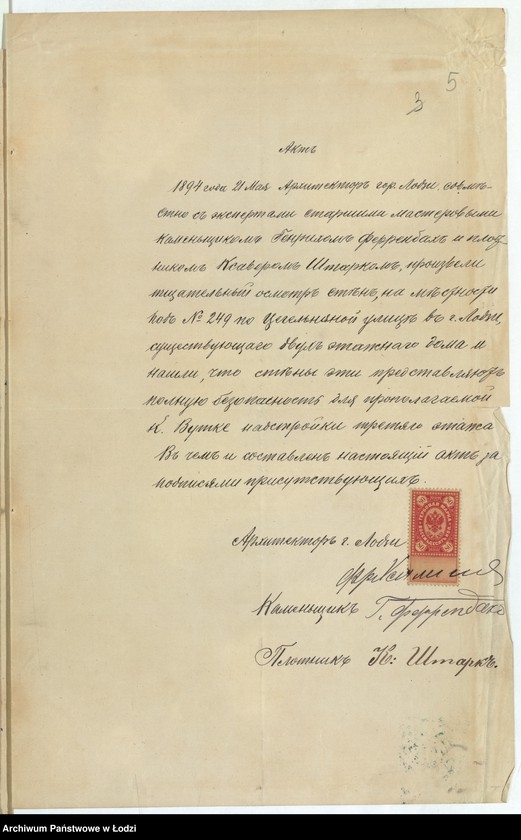 3 5
Актъ
1894 года 21 Мая Архитекторъ гор. Лодзи, совмѣ-
стно съ экспертами старшими мастеровыми
каменьщикомъ Генрихомъ Ферренбах и плот-
никомъ Ксаверомъ Штаркомъ, произвели
тщательный осмотръ стѣнъ, на мѣстности
подъ № 249 по Цегельняной улицѣ въ г. Лодзи,
существующаго двухъ этажнаго дома и
нашли, что стѣны эти представляютъ
полную безопасность для прополагаемой
К. Вутке надстройки третяго этажа
Въ чемъ и составленъ настоящій актъ за
подписями присутствующихъ.
Архитекторъ г. Лодзи
Каменьщикъ Г. Ферренбахъ
Плотникъ К: Штаркъ.
Archiwum Państwowe w Łodzi